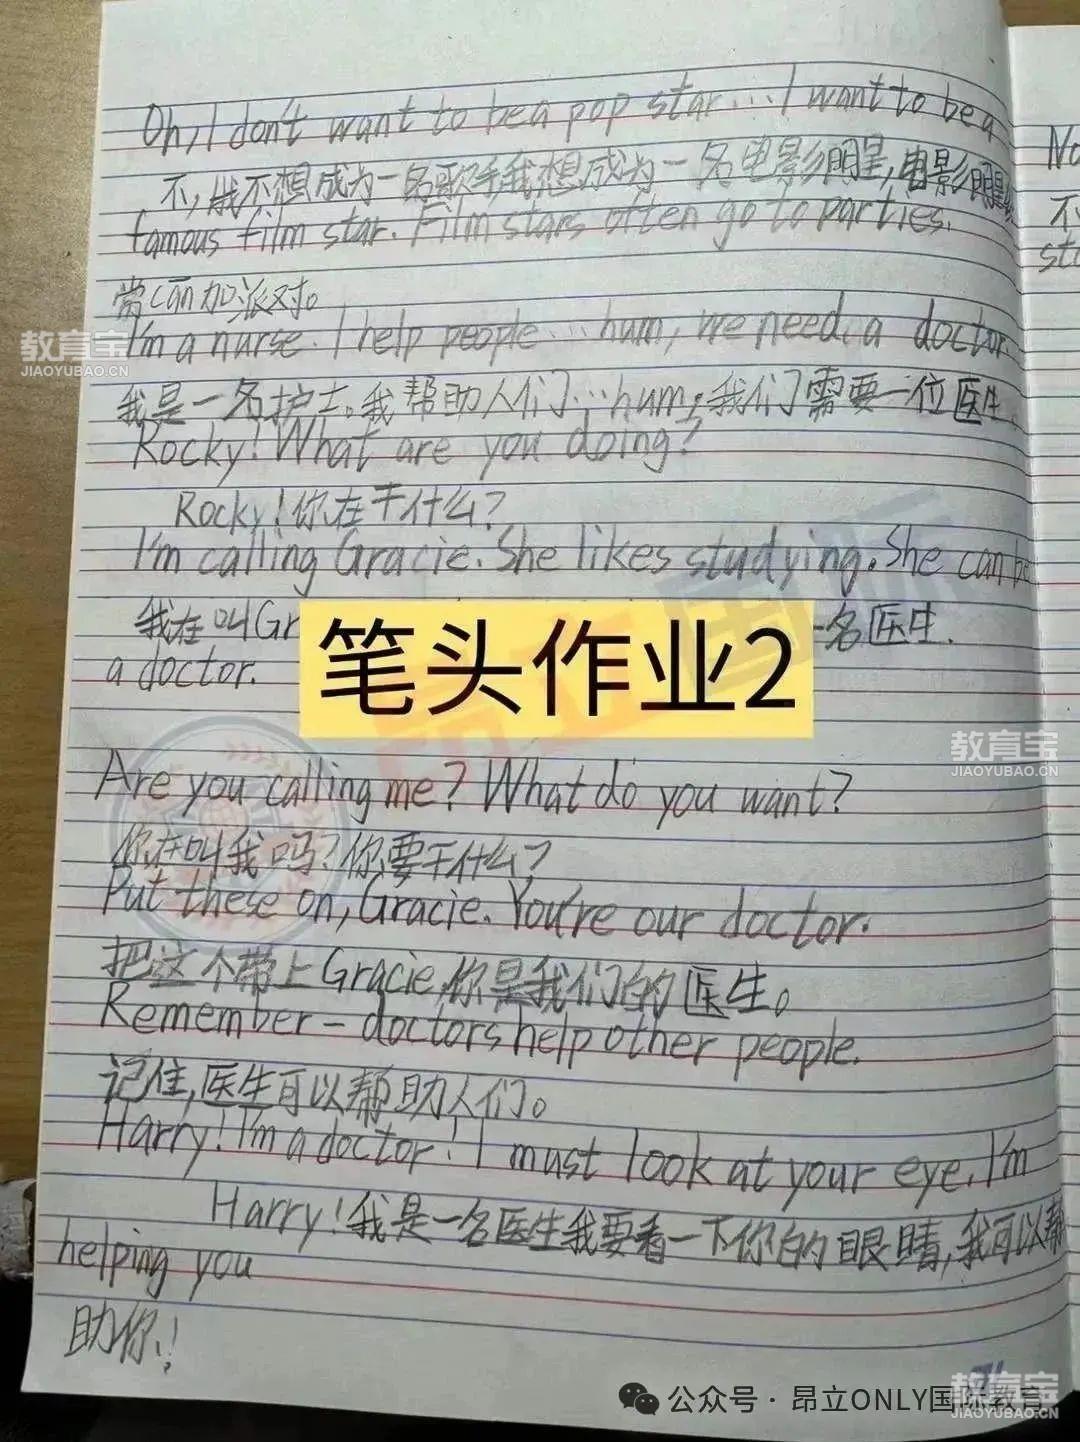 Oh, I don't want to be a pop star... I want to be a
不,我不想成为一名歌手我想成为一名电影明星,电影明星
famous film star. Film stars often go to parties.
常cān加派对。
I'm a nurse. I help people...hum, we need a doctor.
我是一名护士。我帮助人们...hum,我们需要一位医生。
Rocky! What are you doing?
Rocky!你在干什么?
I'm calling Gracie. She likes studying. She can be
我在叫Gr 一名医生.
a doctor.
笔头作业2
Are you calling me? What do you want?
你在叫我吗?你要干什么?
Put these on, Gracie. You're our doctor.
把这个带上Gracie,你是我们的医生。
Remember - doctors help other people.
记住,医生可以帮助人们。
Harry! I'm a doctor! I must look at your eye. I'm
Harry!我是一名医生我要看一下你的眼睛,我可以帮
helping you
助你!
No
不
st
教育宝
JIAOYUBAO.CN
教育宝
JIAOYUBAO.CN
公众号·昂立ONLY国际教育
教育宝
JIAOYUBAO.CN